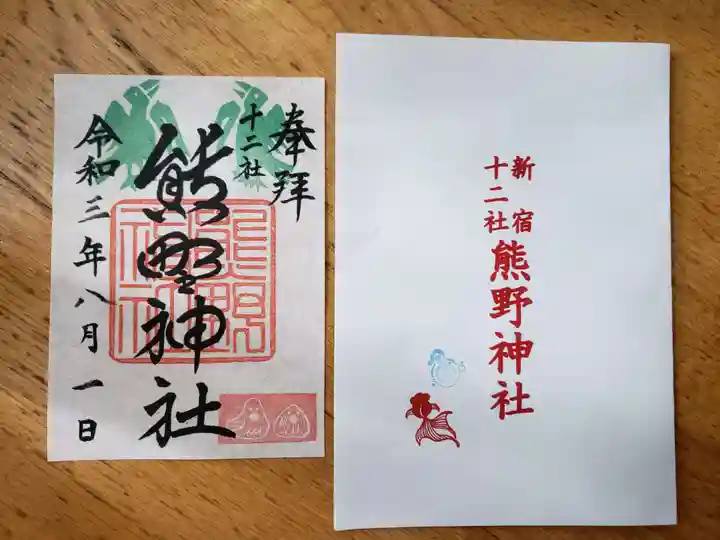 奉拝
十二社
熊野神社
令和三年八月一日
熊野
神社
新宿
十二社
熊野神社